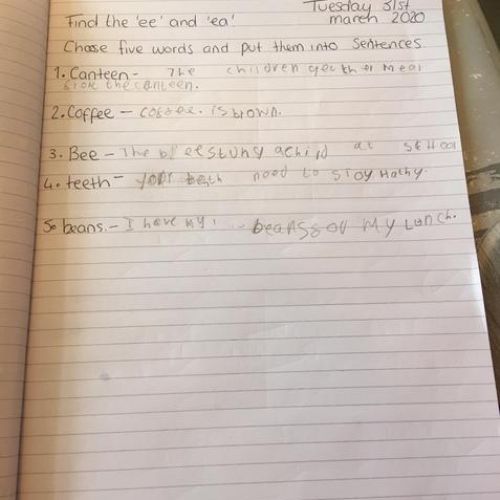 Tuesday 31st
Find the 'ee' and 'ea'
march 2020
Choose five words and put them into Sentences
1. Canteen - The children get their meal
from the canteen.
2. Coffee - coffee. is brown.
3. Bee - The bee stung a child at school
4. teeth - your teeth need to stay Hathy.
5. beans. - I have my beans for My Lunch.